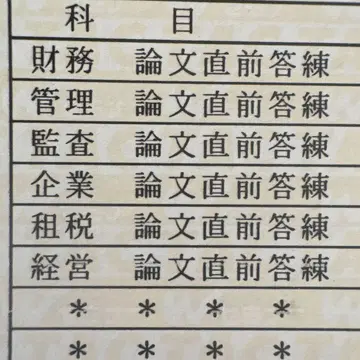 科 目
財務 論文直前答練
管理 論文直前答練
監査 論文直前答練
企業 論文直前答練
租税 論文直前答練
経営 論文直前答練
* * * *
* * * *